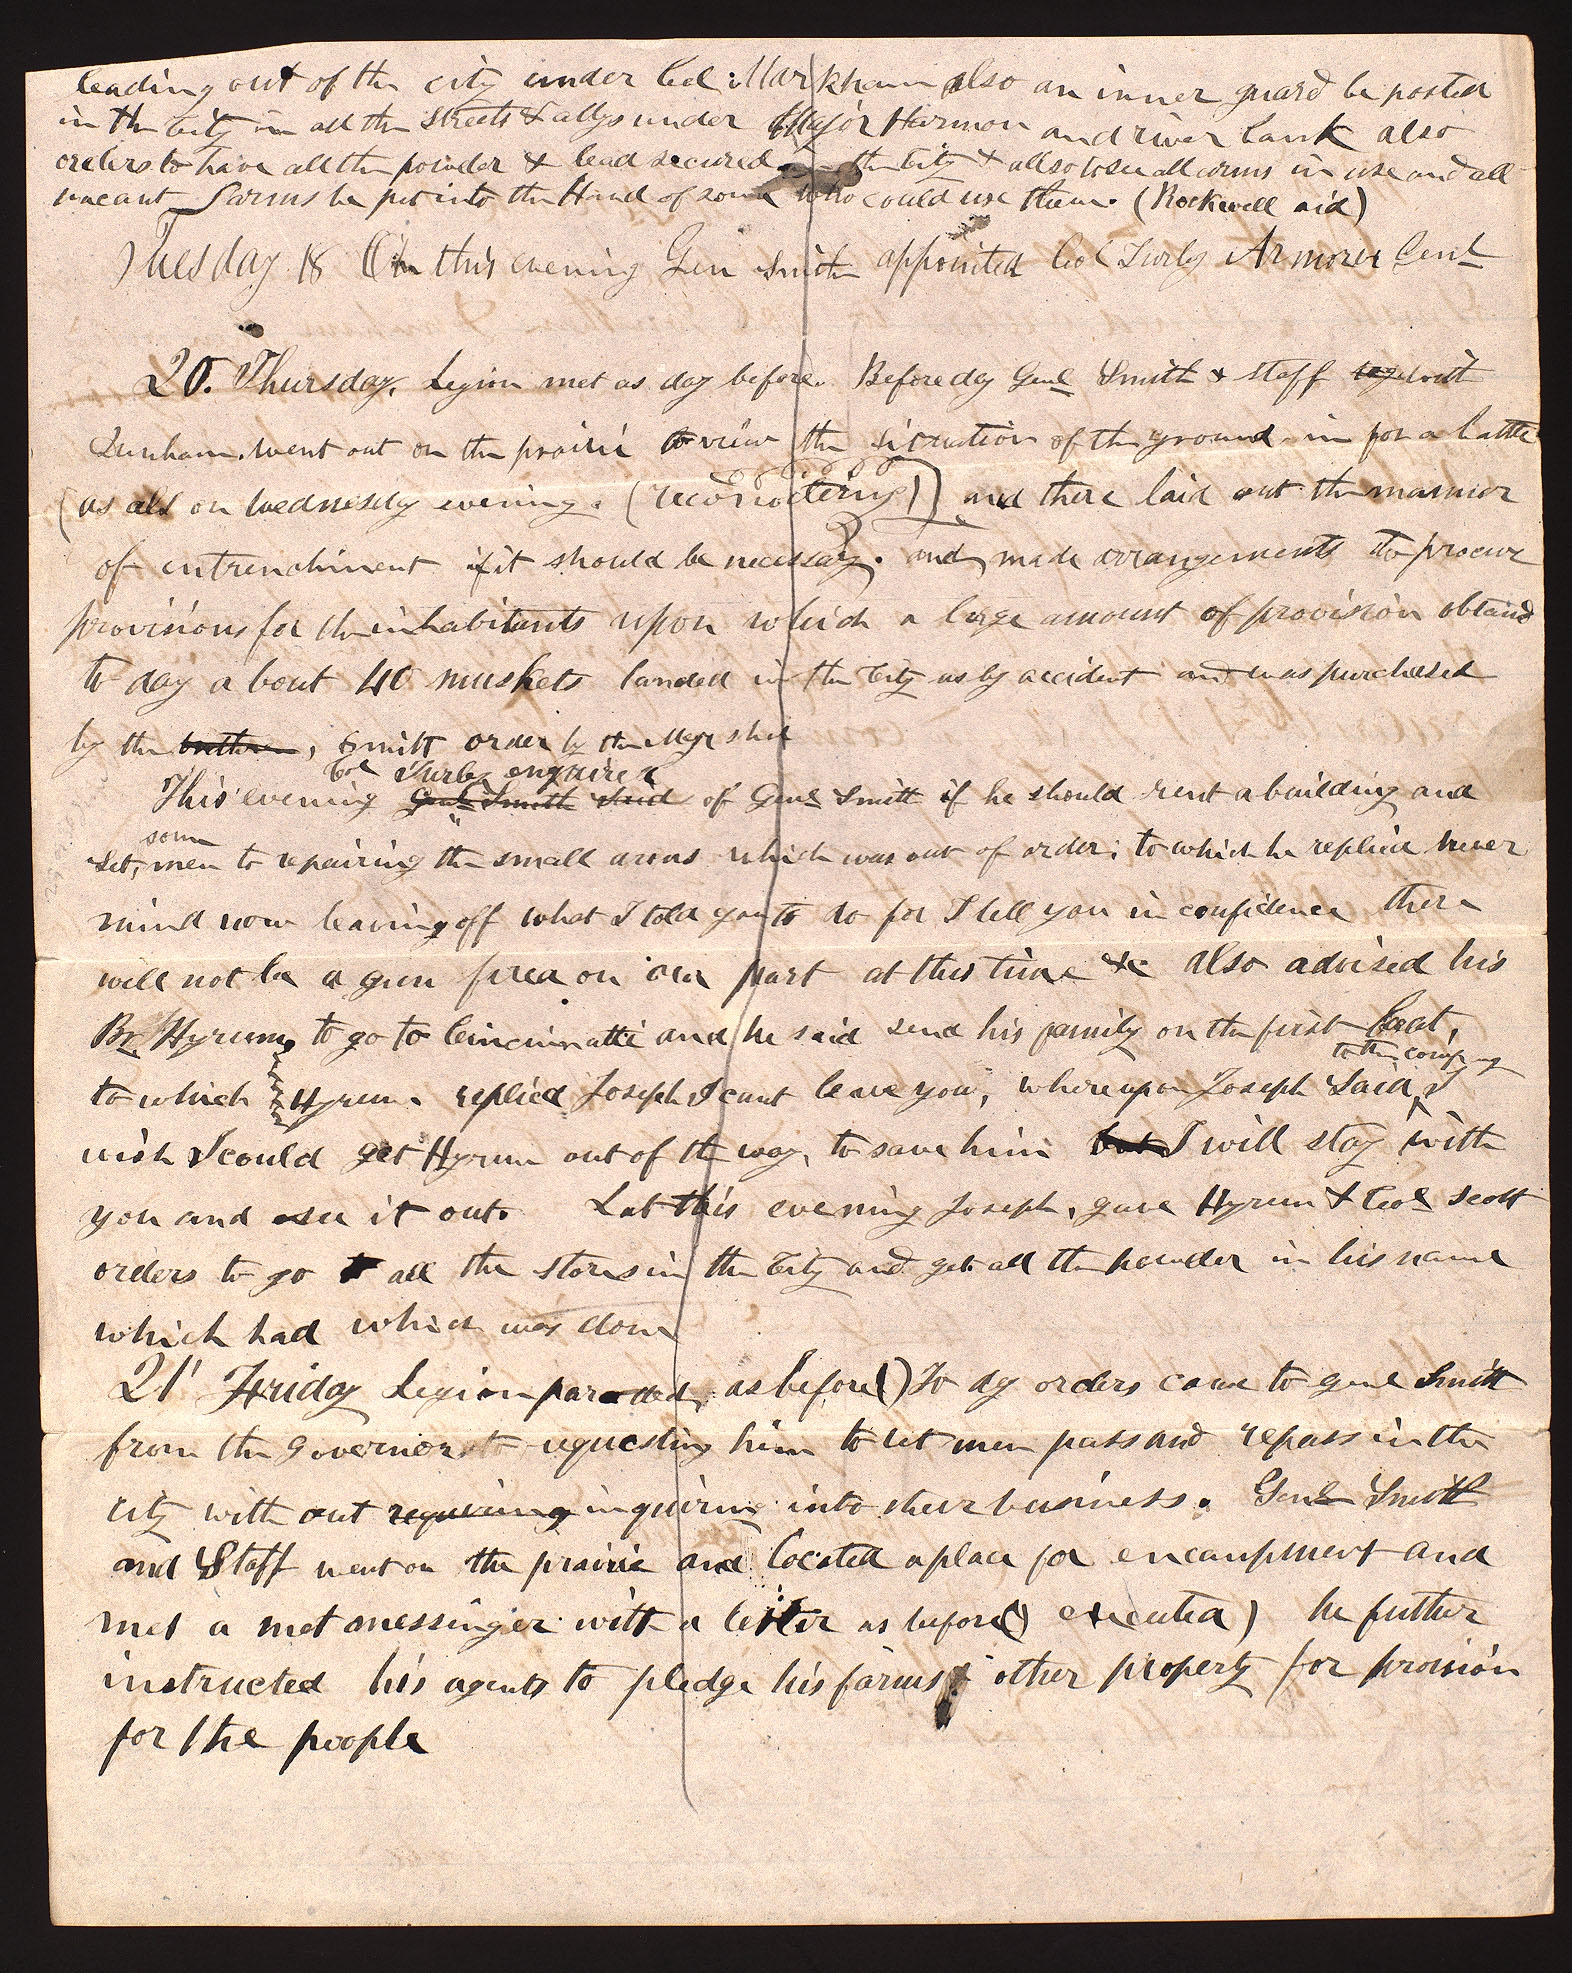 leading out of the city under Col. Markham also an inner guard be posted
in the City in all the streets & allys under Major Harmon and river bank also
orders to have all the powder & lead secured in the City & allso to see all arms in use and all
vacant farms be put into the Hand of some who could use them. (Rockwell aid)
Tuesday 18 On this evening Gen Smith appointed Col Turly Armorer Genl
20. Thursday. Legion met as day before. Before day Genl Smith & staff with
Dunham. went out on the prairie to view the situation of the ground in for a battle
(as als on Wednesdy evening. (reconoitering)) and there laid out the mannor
of entrenchment if it should be necessay. and made arrangements to procure
provisions for the inhabitants upon which a large amount of provision obtaind
to day about 40 muskets landed in the City as by accident and was purchased
by the brethren, Smith order by the
Col Turley enquired
This evening Genl Smith said of Genl Smith if he should rent a building and
some
set, men to repairing the small arms which was out of order; to which he replied never
mind now leaving off what I told you to do for I tell you in confidence there
will not be a gun fired on our part at this time &c also advised his
Br. Hyrum, to go to Cincinnatti and he said send his family on the first boat,
to the company
to which Hyrum. replied Joseph I cant leave you, whereupon Joseph said, I
wish I could get Hyrum out of the way, to save him but I will stay with
you and see it out. Lat this evening Joseph, gave Hyrum & Col Scott
orders to go to all the stores in the City and get all the powder in his name
which had which was done
21 Friday Legion paraded, as before() To dy orders came to genl Smith
from the Governor to requesting him to let men pass and repass in the
city with out requiring inquiring into their business. Genl Smith
and Staff went on the prairie and located a place for encampment and
met a met messinger with a letter as before() executed) he further
instructed his agents to pledge his farms & other property for provision
for the people